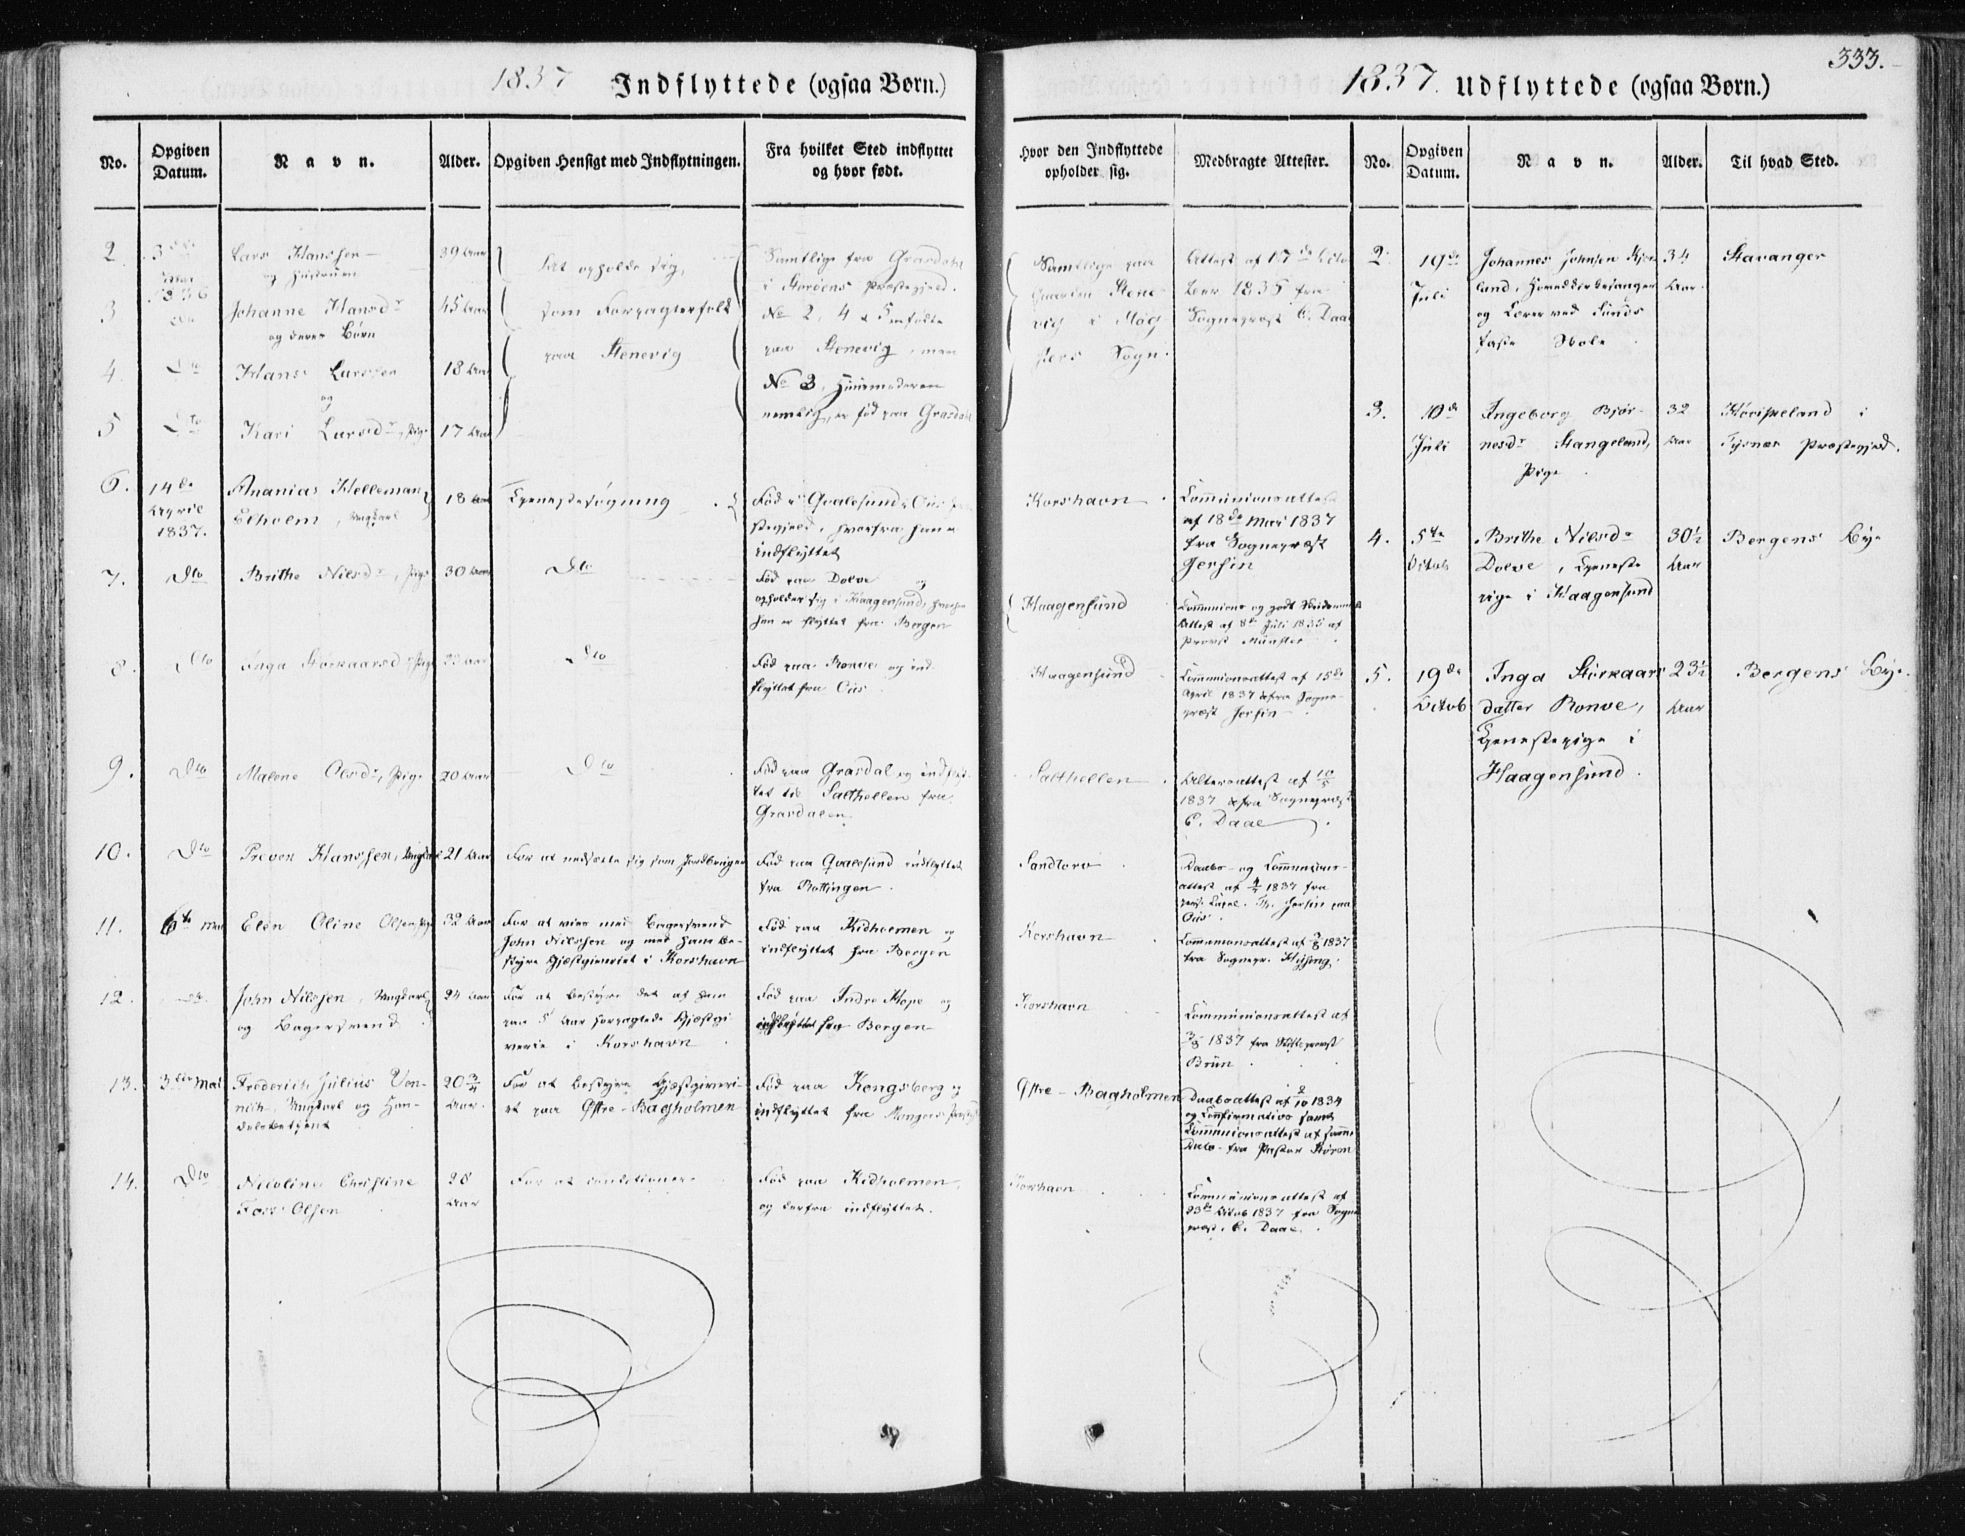 333.
1837 Indflyttede (ogsaa Børn.)
No.
Opgiven
Datum.
Navn.
Alder.
Opgiven Hensigt med Indflytningen.
Fra hvilket Sted indflyttet
og hvor født.
Hvor den Indflyttede
opholder sig.
Medbragte Attester.
2
Lars Hanssen
og Hustruen
39 Aar
At opholde sig,
som Forpagterfolk
paa Stenevig
Samtlige fra Grasdahl
i Stordens Præstegjeld.
No 2, 4 & 5 ere fødte
paa Stenevig, men
No 3, Huusmoderen
nemlig, er fød paa Grasdahl
Samtlige paa
Gaarden Stene-
vig i Møg-
sters Sogn.
Attest af 17de Octo
ber 1836 fra
Sognepræst C. Daae
3
Johanne Hansdr
og deres Børn
45 Aar
4.
Dto
Hans Larssen
og
18 Aar
5
Dto
Kari Larsdr, Pige
17 Aar
6.
14de
April
1837.
Ananias Kelleman
Elholm, Ungkarl
18 Aar
Tjenestesøgning
Fød i Qvalesund i Ous Præ-
stegjeld, hvorfra han er
indflyttet
Korshavn
Communionsattest
af 18de Mai 1837
fra Sognepræst
Jersin
7.
Dto
Brithe Nilsdr, Pige
30 Aar
Dto
Fød paa Dolve og
opholder sig i Haagensund, hvorhen
hun er flyttet fra Bergen
Haagensund
Communions og godt Skudsmaals
Attest af 8de Juli 1835 af
Provst Münster
8.
Dto
Inga Storkaarsd, Pige
23 Aar
Dto
Fød paa Ronve og ind-
flyttet fra Ous
Haagensund
Communionsattest af 15de
April 1837 fra Sogne-
præst Jersin
9.
Dto
Malene Olsdr, Pige
20 Aar
Dto
Fød paa Grasdal og indflyt-
tet til Salthellen fra
Grasdalen
Salthellen
Altersattest af 10/5
1837 fra Sognepræst
C. Daae
10.
Dto
Preven Hanssen, Ungkarl
21 Aar
For at nedsætte sig som Jordbruger
Fød paa Qvalesund indflyttet
fra Rottingen
Sandtorv
Daabs- og Communions-
attest af 1837 fra
pers. Capel. Th. Jersin paa
Ous.
11.
6te Mai
Elen Oline Olsen, Pige
32 Aar
For at være med Bagersvend
John Nilssen og med ham be-
styre Gjæstgiveriet i Korshavn
Fød paa Kidholmen og
indflyttet fra Bergen
Korshavn
Communionsattest af 1837
fra Sognepr.
12.
Dto
John Nilssen, Ungkarl
og Bagersvend
24 Aar
For at bestyre det af ham
paa 5 Aar forpagtede Gjæstgi
verie i Korshavn
Fød paa Indre Hope og
indflyttet fra Bergen
Korshavn
Communionsattest af
1837 fra Stiftsprovst
Brun
13.
3die Mai
Frederich Julius Ven-
nich, Ungkarl og Han-
delsbetjent
20 3/4
Aar.
For at bestyre Gjæstgiveri-
et paa Østre-Bagholmen
Fød paa Kongsberg og
indflyttet fra Mangers Præstegj
Østre-Bagholmen
Daabsattest af 2/10 1834
og Confirmations samt
Communionsattest af samme
Dato fra Pastor Støren
14.
Dto
Nicoline Christine
Foss Olsen
28
Aar
For at conditionere
Fød paa Kidholmen,
og derfra indflyttet.
Korshavn
Communions attest af
23de Octob 1837 fra Sogne
præst C. Daae.
1837. Udflyttede (ogsaa Børn.)
No.
Opgiven
Datum.
Navn.
Alder.
Til hvad Sted.
2
19de
Juli
Johannes Johnsen
land, Kirkesanger
og Lærer ved Sunds
faste Skole
34
Aar.
Stavanger
3.
10de
Juli
Ingeborg Bjør-
nesdr Stangeland,
Pige
32
Aar
i
Tysnæs Præstegjeld.
4.
5te
Octob
Brithe Nilsdr
Dolve, Tjeneste
pige i Haagensund
30½
Aar
Bergens Bye
5.
19de
Octob
Inga Storkaars
datter Ronve,
Tjenestepige i
Haagensund.
23½
Aar
Bergens Bye.